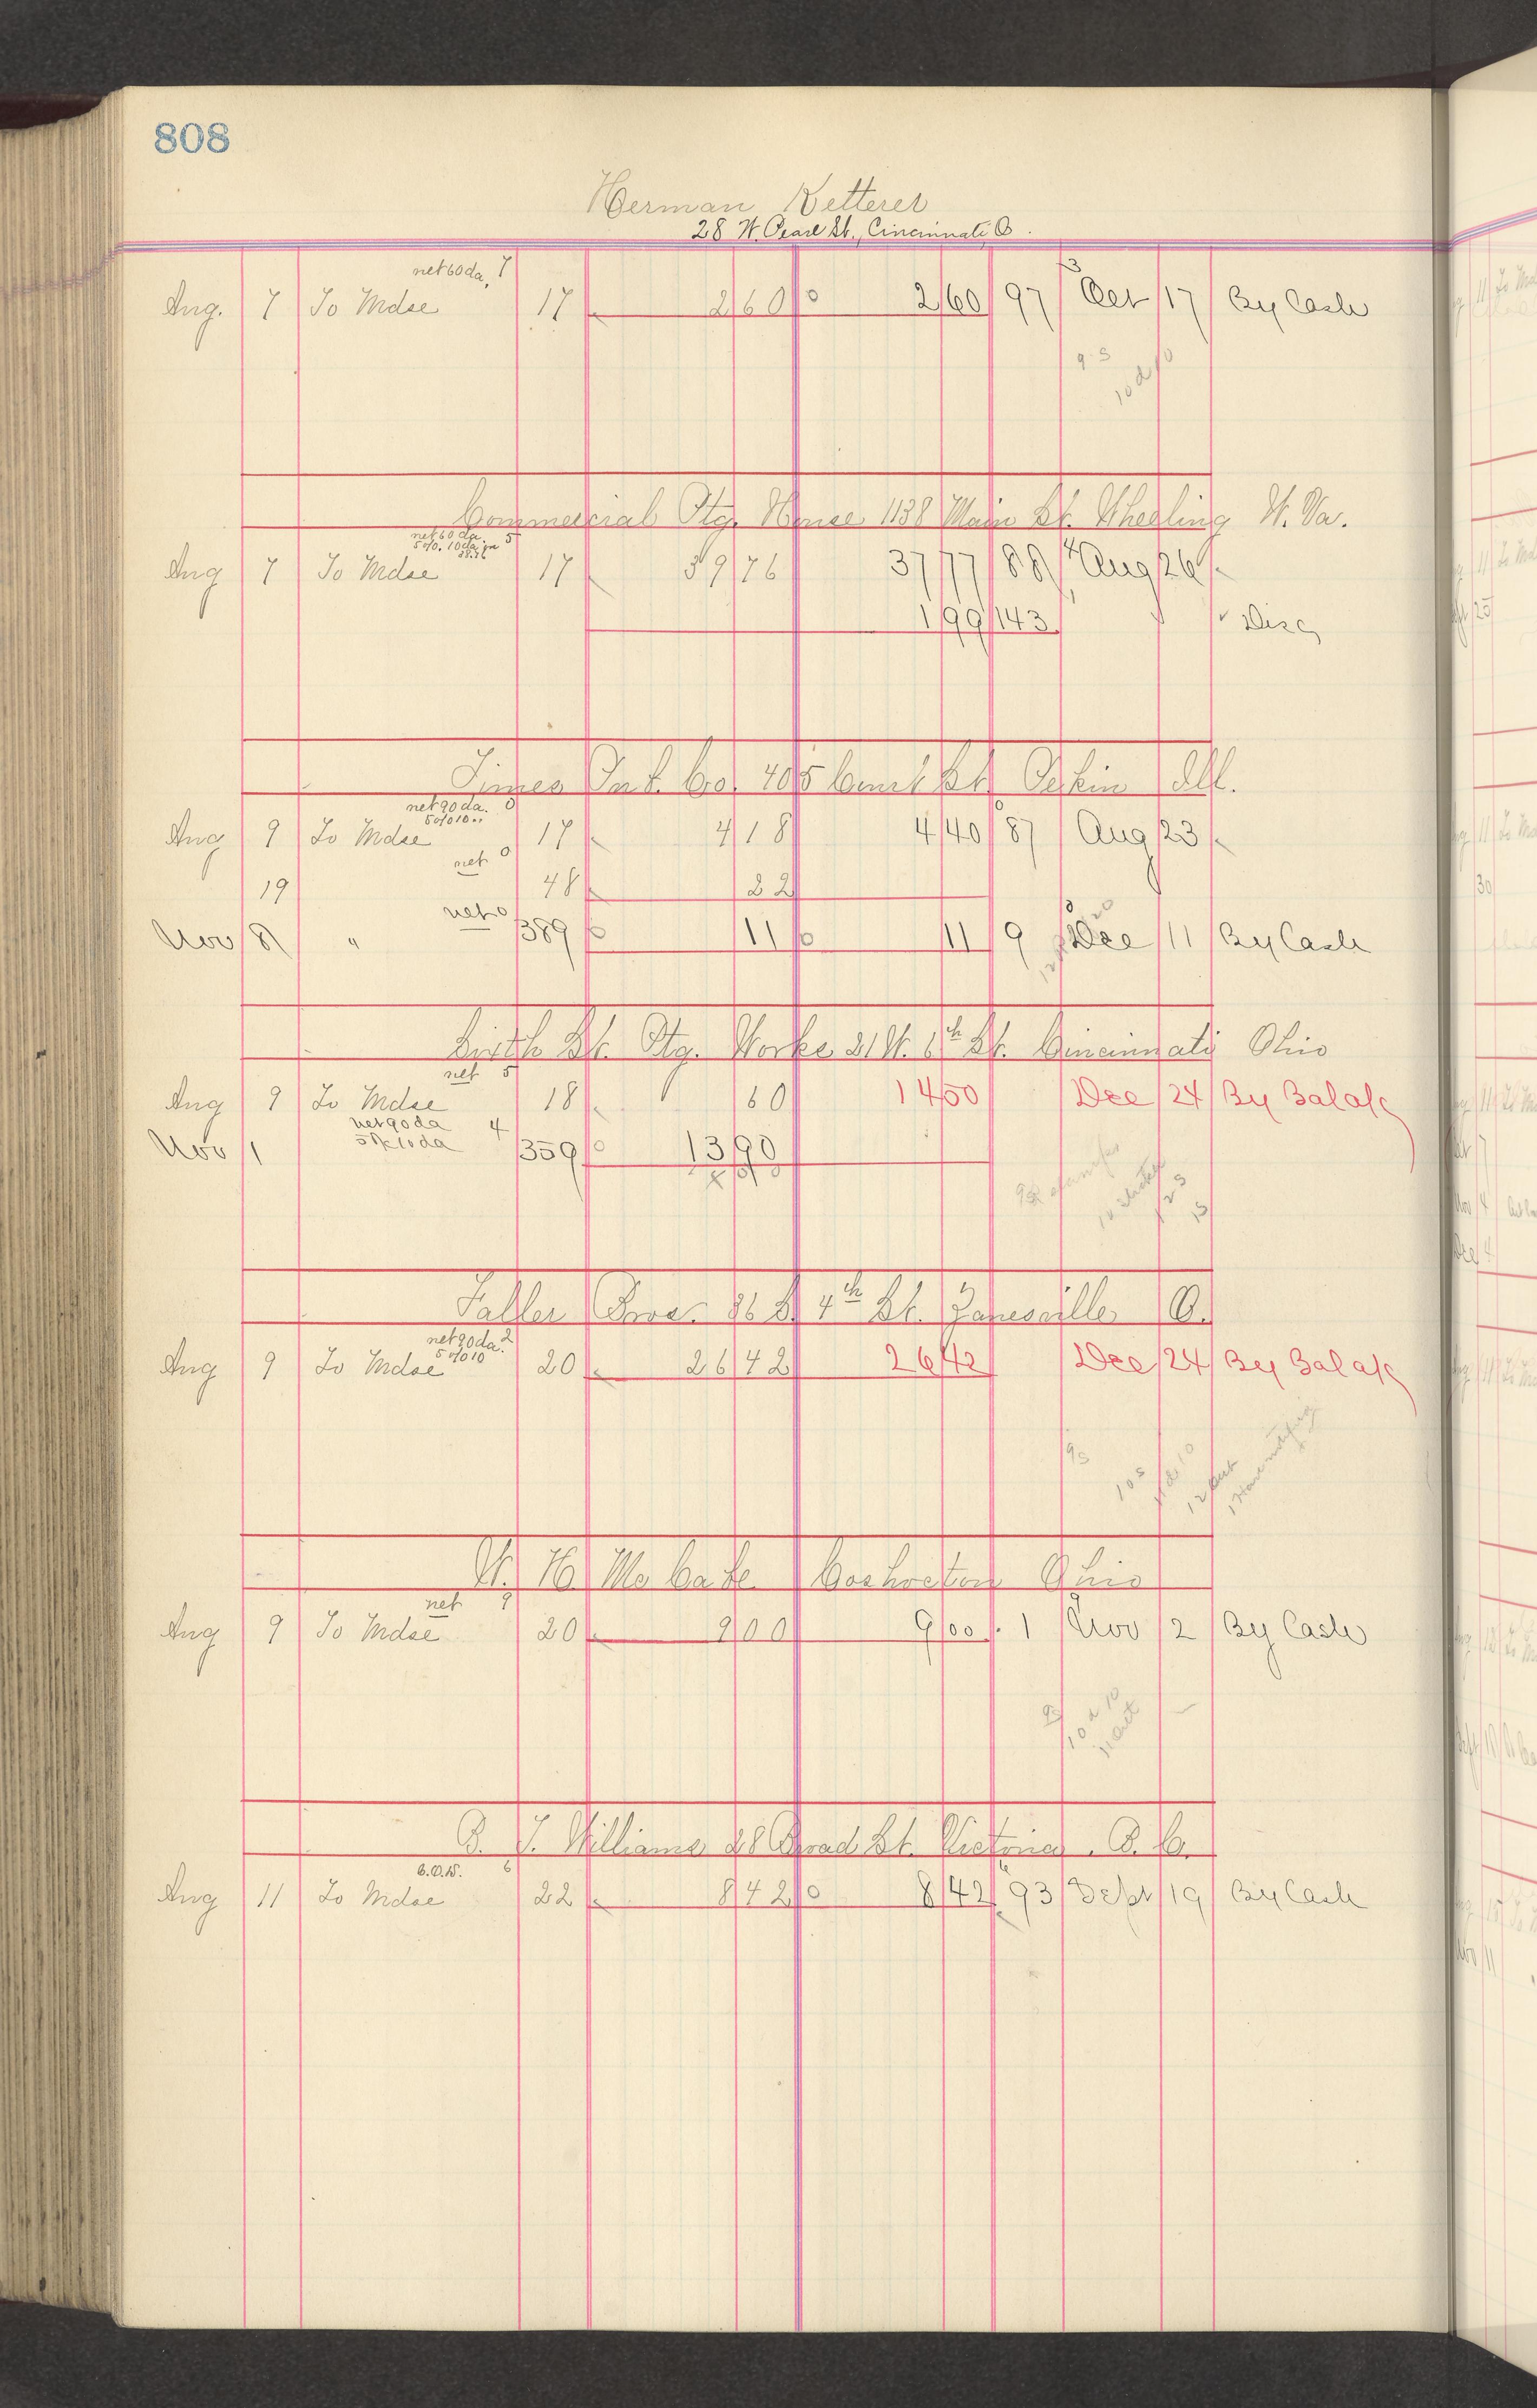 808
Herman Ketterer
28 W. Pearl St., Cincinnati O.
net 60 da. 7
Aug. 7 To Mdse 17 2 60 0 2 60 97 3 Oct 17 By Cash
9 S
10 d 10
Commercial Ptg. House 1138 Main St. Wheeling W. Va.
net 60 da. 5
5% 10 da.
Aug 7 To Mdse 17 39 76 37 77 88 4 Aug 26
1 99 143 Disc
Times Pub. Co. 405 Court St. Pekin Ill.
net 90 da. 0
5% 10
Aug 9 To Mdse 17 4 18 4 40 87 Aug 23
net 0
19 48 22
net 0
Nov 8 " 389 11 0 11 9 Dec 11 By Cash
Sixth St. Ptg. Works 21 W. 6th St. Cincinnati Ohio
net 5
Aug 9 To Mdse 18 60 14 50 Dec 24 By Bal a/c
net 90 da 4
5% 10 da
Nov 1 359 0 13 90
Faller Bros. 36 S 4th St. Zanesville O.
net 90 da. 2
5% 10
Aug 9 To Mdse 20 26 42 26 42 Dec 24 By Bal a/c
9 S
10 S
11 d 10
W. H. McCabe Coshocton Ohio
net 9
Aug 9 To Mdse 20 9 00 9 00 1 Nov 2 By Cash
9 S
10 d 10
B. T. Williams 28 Broad St. Victoria, B. C.
C.O.D. 6
Aug 11 To Mdse 22 8 42 0 8 42 93 Sept 19 By Cash